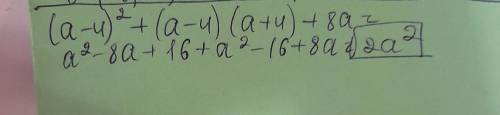 (a-4)² + (a-4) (a+4) + 8a =
a² - 8a + 16 + a² - 16 + 8a = 2a²